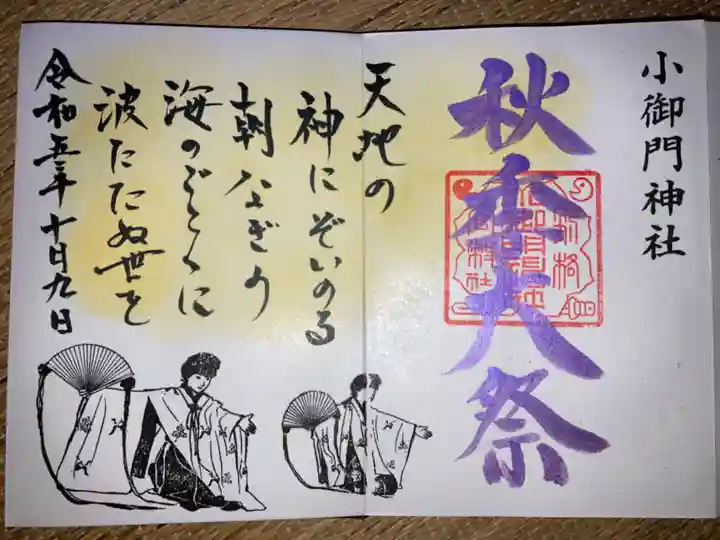 小御門神社
秋季大祭
天地の
神にぞいのる
朝なぎの
海のごとくに
波たたぬ世を
令和五年十月九日